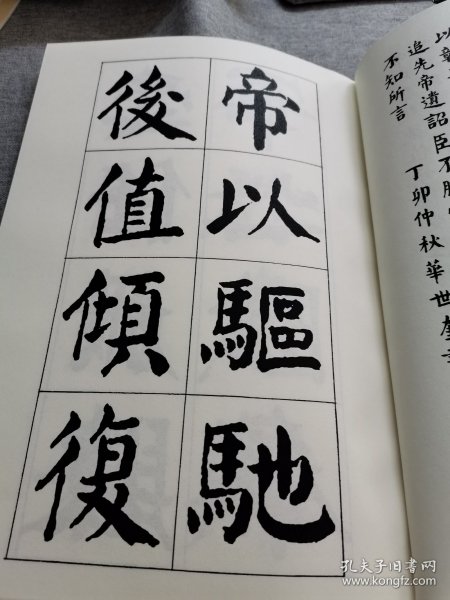 以
追先帝遺詔臣不勝
不知所言 丁卯仲秋華世奎
帝以驅馳
後值傾復
孔夫子旧书网
www.kongfz.com